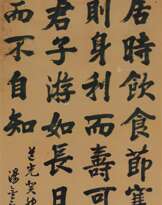 居時飲食節寒
則身利而壽可
君子游如長日
而不自知